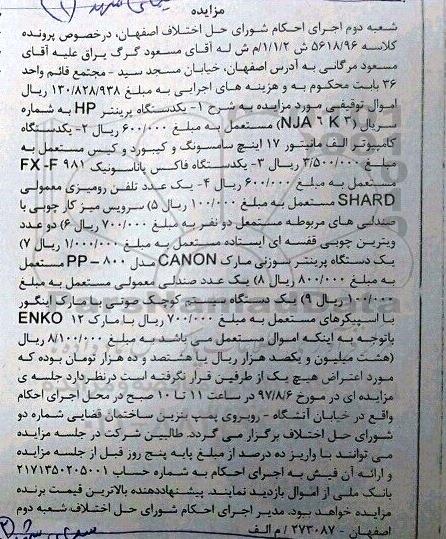 مزایده
شعبه دوم اجرای احکام شورای حل اختلاف اصفهان، درخصوص پرونده
کلاسه ۵۶۱۸/۹۶ ش ۱/۱/۲/م ش له آقای مسعود گرگ یراق علیه آقای
مسعود مرگانی به آدرس اصفهان، خیابان مسجد سید - مجتمع قائم واحد
۳۶ بابت محکوم به و هزینه های اجرایی به مبلغ ۱۳۰/۸۲۸/۹۳۸ ریال
اموال توقیفی مورد مزایده به شرح ۱- یکدستگاه پرینتر HP به شماره
سریال (NJA ٦ K ۳) مستعمل به مبلغ ۶۰۰/۰۰۰ ریال ۲- یکدستگاه
کامپیوتر الف مانیتور ۱۷ اینچ سامسونگ و کیبورد و کیس مستعمل به
مبلغ ۳/۵۰۰/۰۰۰ ریال ۳- یکدستگاه فاکس پاناسونیک FX-F ۹۸۱
مستعمل به مبلغ ۶۰۰/۰۰۰ ریال ۴- یک عدد تلفن رومیزی معمولی
SHARD مستعمل به مبلغ ۱۰۰/۰۰۰ ریال ۵) سرویس میز کار چوبی با
صندلی های مربوطه مستمعل دو نفر به مبلغ ۷۰۰/۰۰۰ ریال ۶) دو عدد
ویترین چوبی قفسه ای ایستاده مستعمل به مبلغ ۱/۰۰۰/۰۰۰ ریال ۷)
یک دستگاه پرینتر سوزنی مارک CANON مدل ۸۰۰ – PP مستعمل
به مبلغ ۸۰۰/۰۰۰ ریال ۸) یک عدد صندلی معمولی مستعمل به مبلغ
۱۰۰/۰۰۰ ریال ۹) یک دستگاه سیستم کوچک صوتی با مارک اینگور
با اسپیکرهای مستعمل به مبلغ ۷۰۰/۰۰۰ ریال با مارک ENKO ۱۲
باتوجه به اینکه اموال مستعمل می باشد به مبلغ ۸/۱۰۰/۰۰۰ ریال
(هشت میلیون و یکصد هزار ریال یا هشتصد و ده هزار تومان بوده که
مورد اعتراض هیچ یک از طرفین قرار نگرفته است درنظردارد جلسه ی
مزایده ای در مورخ ۹۷/۸/۶ در ساعت ۱۱ تا ۱۰ صبح در محل اجرای احکام
واقع در خیابان آتشگاه - روبروی پمپ بنزین ساختمان قضایی شماره دو
شورای حل اختلاف برگزار می گردد. طالبین شرکت در جلسه مزایده
می توانند با واریز ده درصد از مبلغ پایه پنج روز قبل از جلسه مزایده
و ارائه آن فیش به اجرای احکام به شماره حساب ۲۱۷۱۳۵۰۲۰۵۰۰۱
بانک ملی از اموال بازدید نمایند. پیشنهاددهنده بالاترین قیمت برنده
مزایده خواهد بود. مدیر اجرای احکام شورای حل اختلاف شعبه دوم
اصفهان - ۲۷۳۰۸۷ / م الف